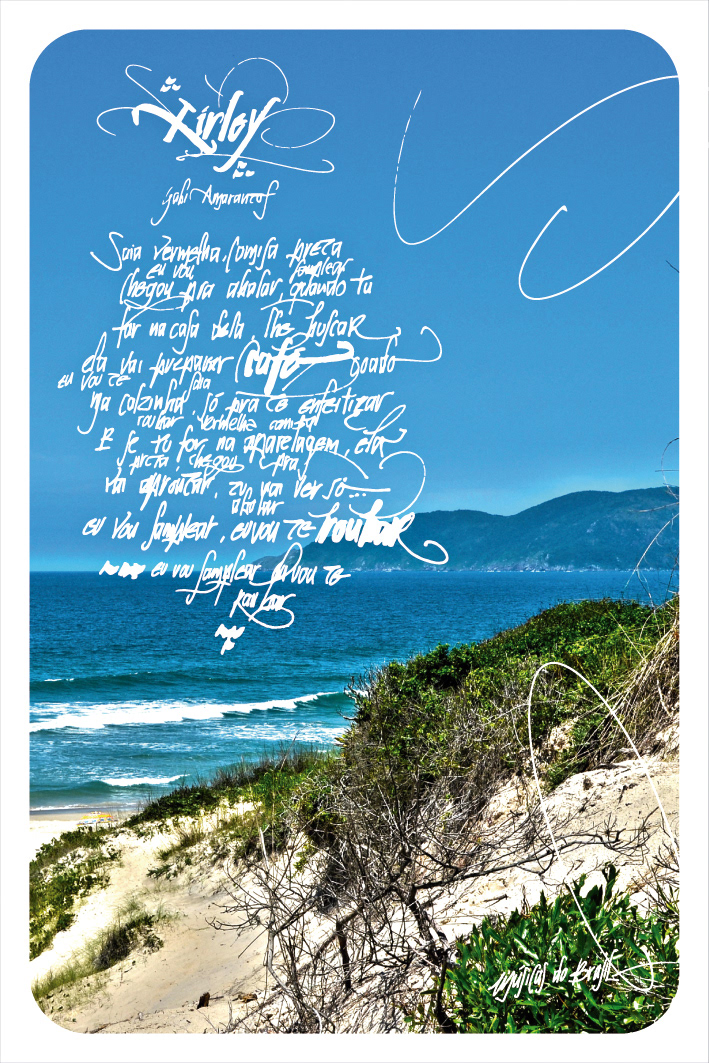 Xirley
Gabi Amarantos
Saia vermelha, camisa preta
eu vou samplear
chegou pra abalar, quando tu
for na casa dela, lhe buscar
ela vai preparar café coado
eu vou te saia
na calcinha, só pra te enfeitiçar
roubar vermelha camisa
E se tu for na aparelagem, ela
preta, chegou pra
vai aprontar, tu vai ver só...
abalar
eu vou samplear, eu vou te roubar
eu vou samplear eu vou te
roubar
músicas do Brasil